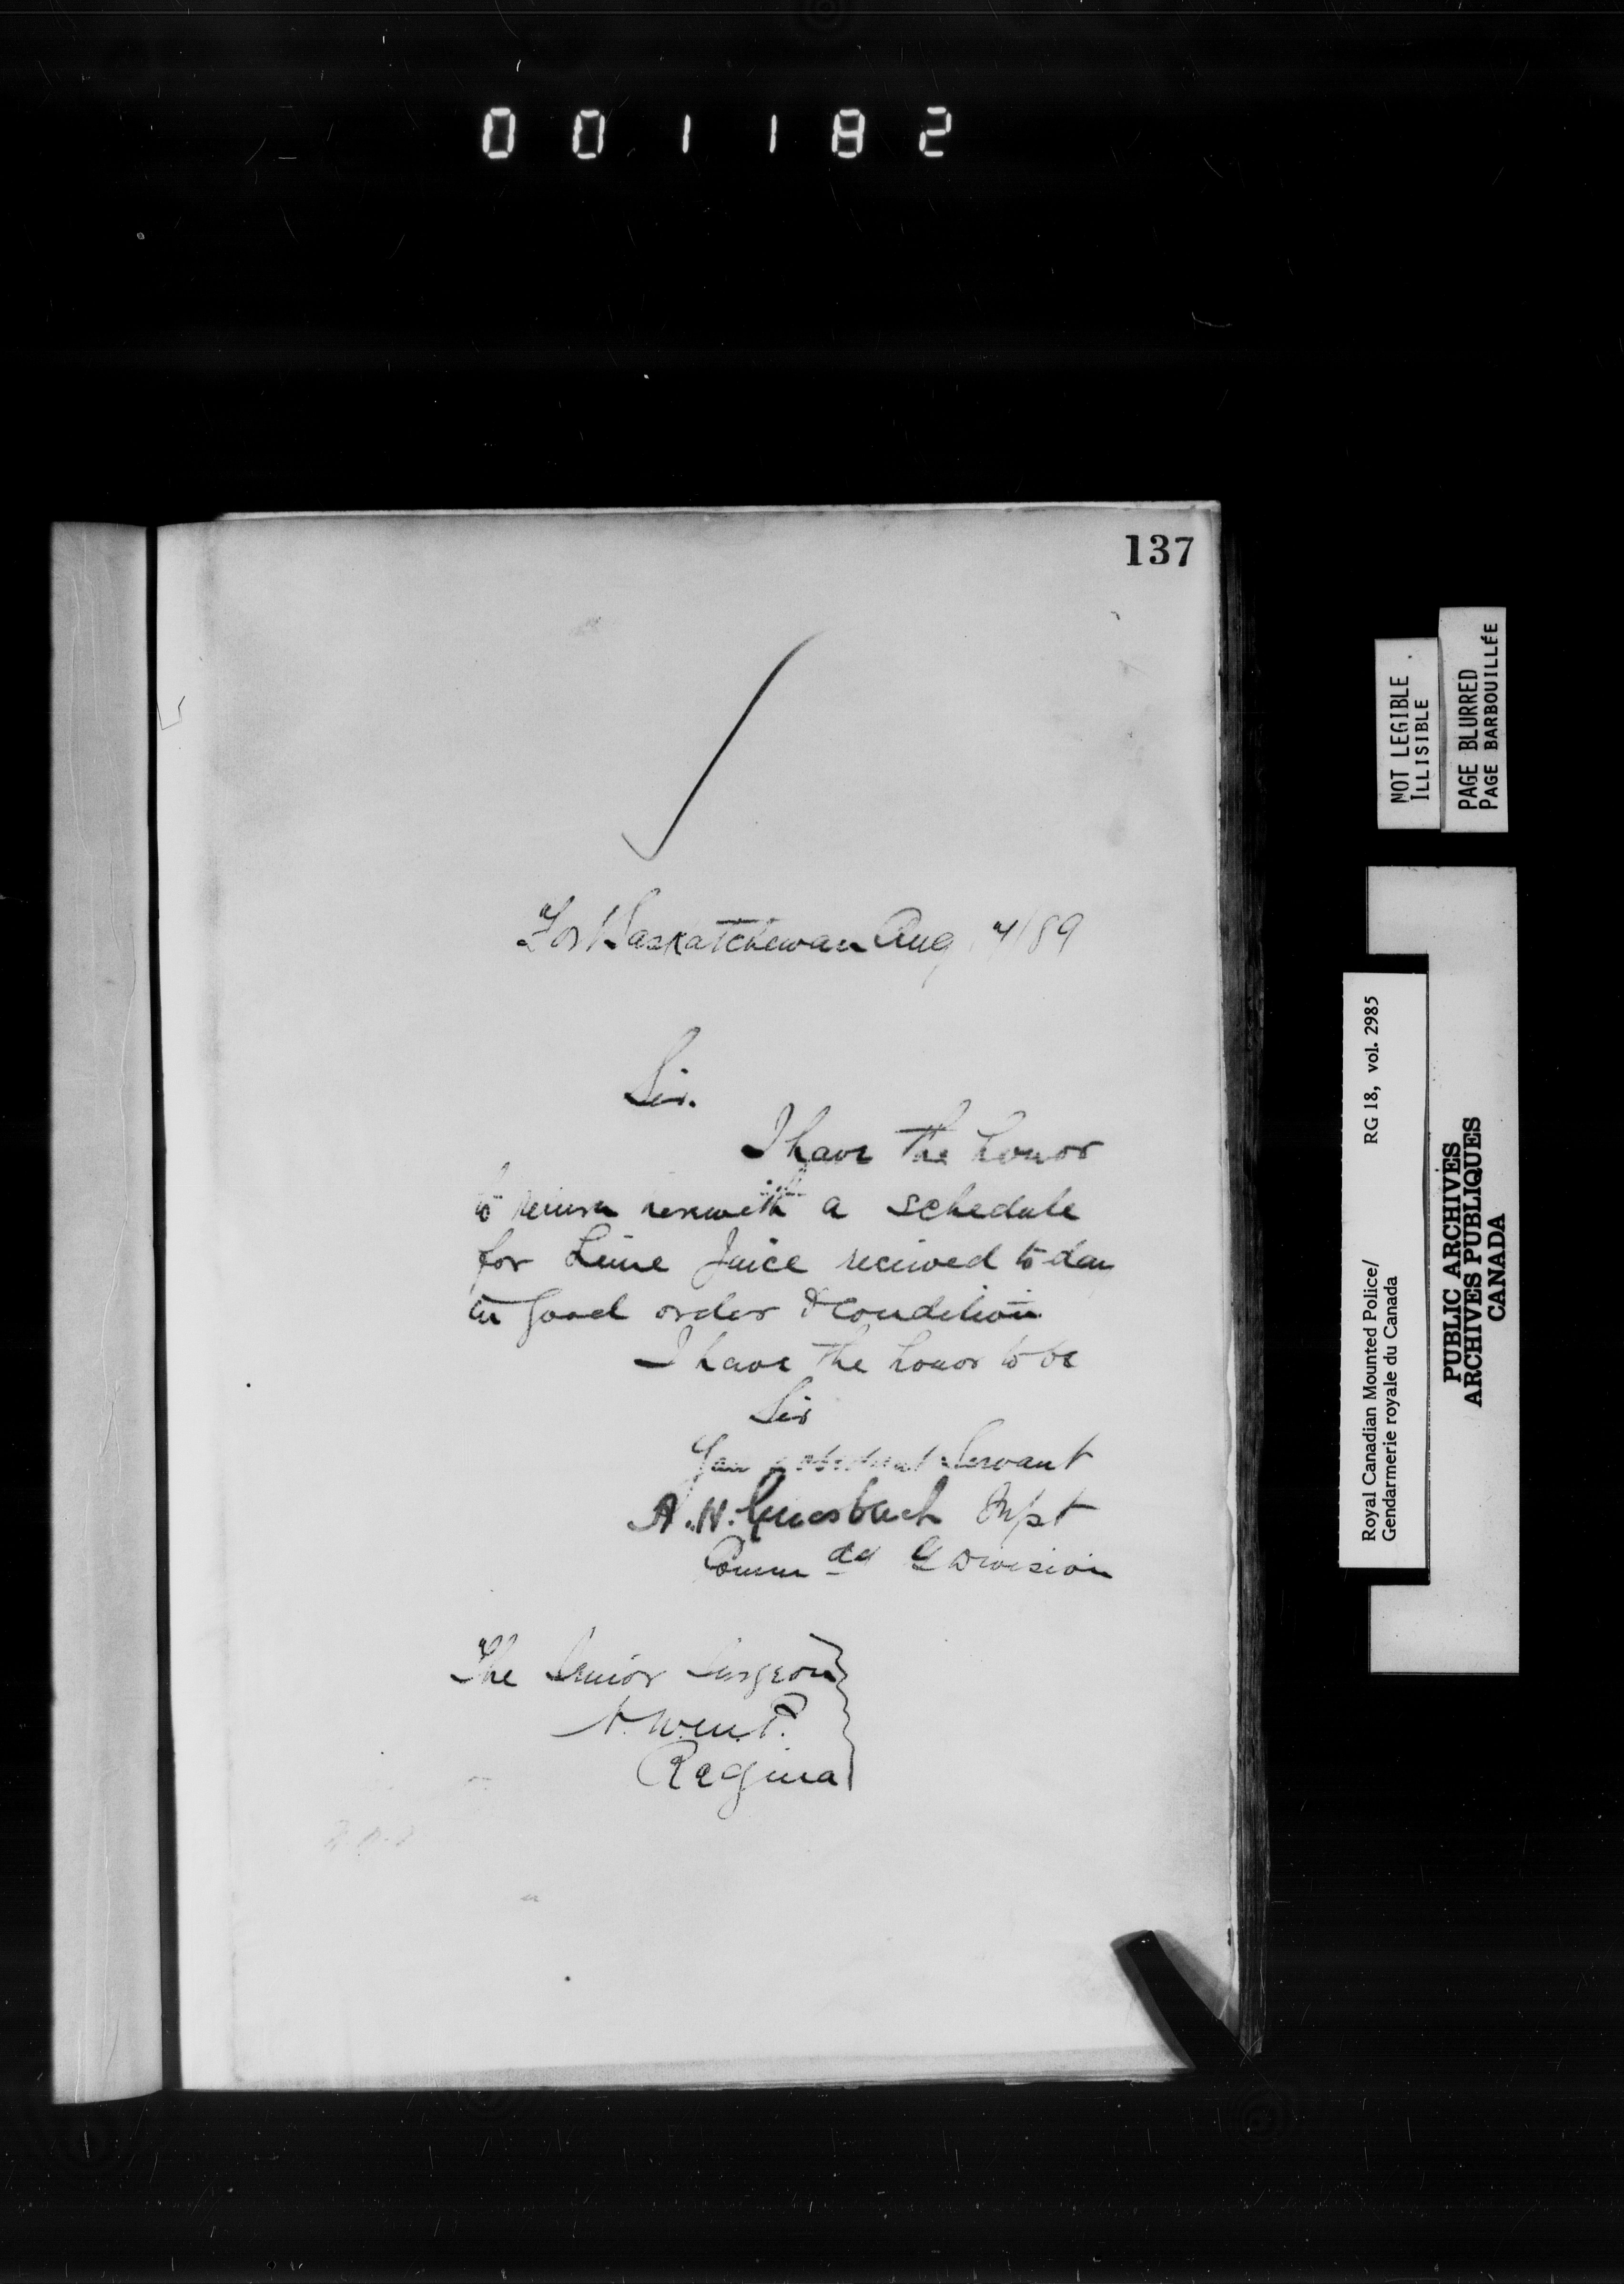 001182
137
Fort Saskatchewan Aug 4/89
Sir.
I have the honor
to return herewith a schedule
for Lime Juice recieved to day
in good order & condition
I have the honor to be
Sir
Your obedient Servant
A.H. Griesbach Supt
Commdg G Division
The Senior Surgeon
N.W.M.P.
Regina
NOT LEGIBLE
ILLISIBLE
PAGE BLURRED
PAGE BARBOUILLÉE
Royal Canadian Mounted Police/
Gendarmerie royale du Canada
RG 18, vol. 2985
PUBLIC ARCHIVES
ARCHIVES PUBLIQUES
CANADA